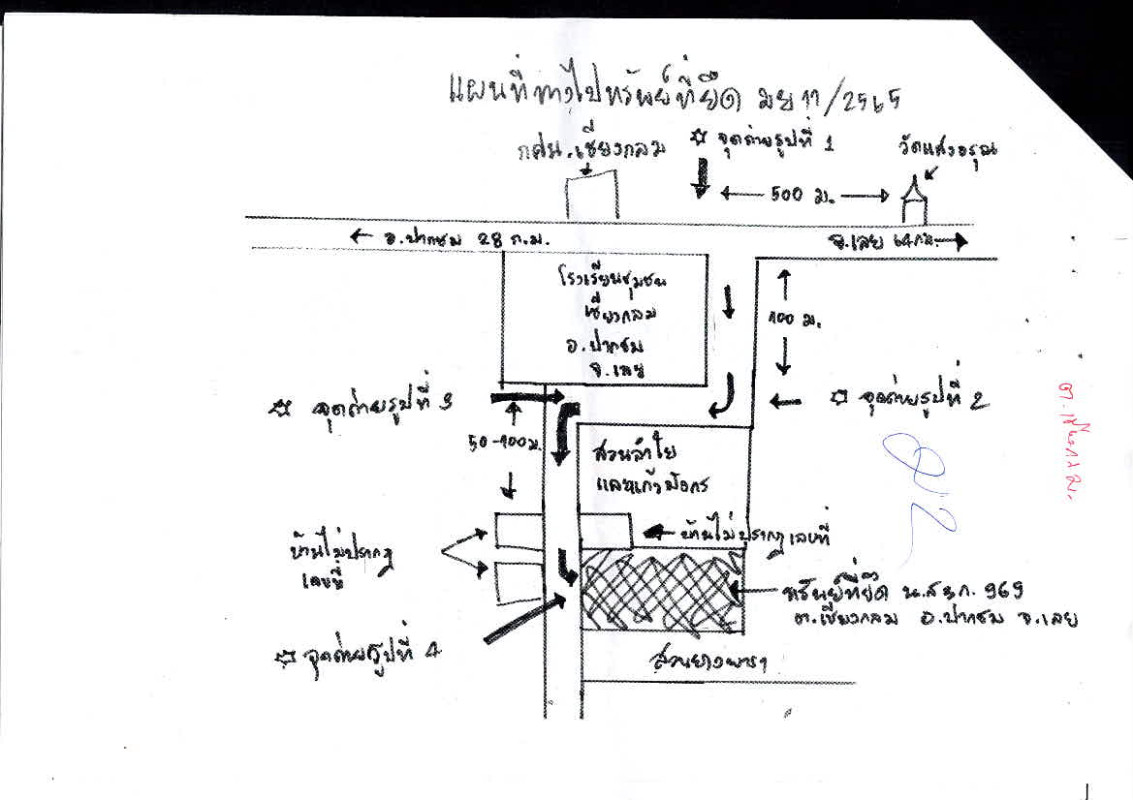 แผนที่ทางไปทรัพย์ที่ยึด มย 11/2565
กศน.เชียงกลม
☆ จุดถ่ายรูปที่ 1
วัดแสงอรุณ
← 500 ม. →
← อ.ปากชม 28 ก.ม.
จ.เลย 64 กม →
โรงเรียนชุมชน
เชียงกลม
อ.ปากชม
จ.เลย
100 ม.
☆ จุดถ่ายรูปที่ 3
☆ จุดถ่ายรูปที่ 2
ต.เชียงกลม.
50-100ม.
สวนลำไย
และแก้วมังกร
บ้านไม่ปรากฏเลขที่
บ้านไม่ปรากฏ
เลขที่
ทรัพย์ที่ยึด น.ส.3ก. 969
ต.เชียงกลม อ.ปากชม จ.เลย
☆ จุดถ่ายรูปที่ 4
สวนยางพารา